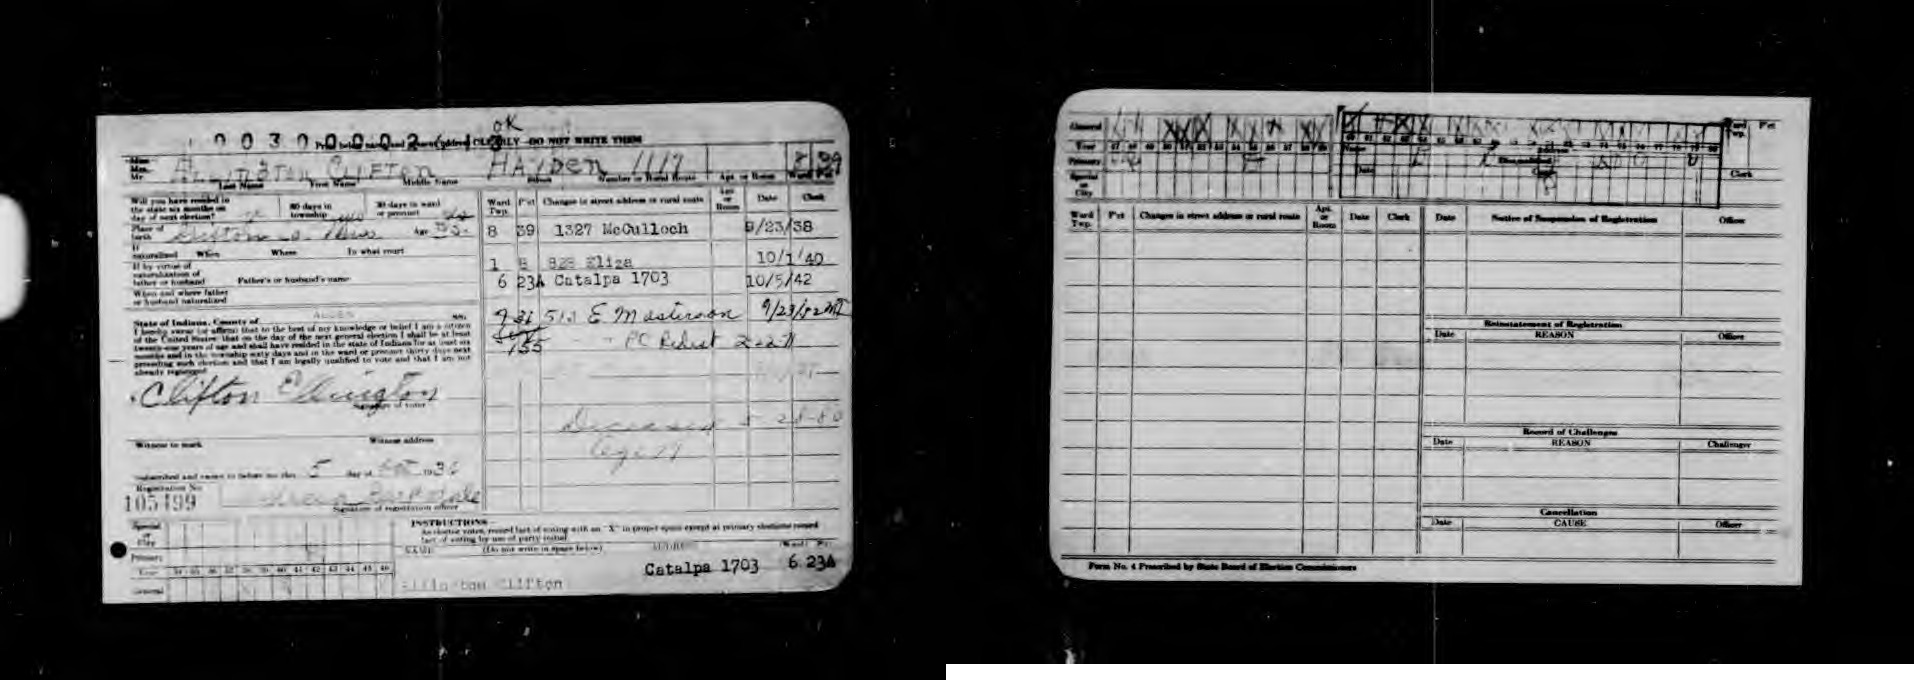 OK
0030000264
CLEARLY—DO NOT WRITE THEM
Miss
Mrs.
Mr. Ellington Clifton HAYDEN 1117 8 39
Last Name First Name Middle Name Street Number or Rural Route Apt. or Room Ward Pct
Will you have resided in
the state six months on
day of next election? 60 days in
township 30 days in ward
or precinct
Place of
birth Age
If
naturalized When Where In what court
If by virtue of
naturalization of
father or husband Father's or husband's name
When and where father
or husband naturalized
State of Indiana, County of ALLEN ss.
I hereby swear (or affirm) that to the best of my knowledge or belief I am a citizen
of the United States; that on the day of the next general election I shall be at least
twenty-one years of age and shall have resided in the state of Indiana for at least six
months and in the township sixty days and in the ward or precinct thirty days next
preceding such election and that I am legally qualified to vote and that I am not
already registered.
Clifton Ellington
Signature of voter
Witness to mark Witness address
Subscribed and sworn to before me this 5 day of Oct 193
Registration No.
105499
Signature of registration officer
Ward
Twp. P'ct Changes in street address or rural route Apt.
or
Room Date Clerk
8 39 1327 McCulloch 9/23/38
1 8 828 Eliza 10/1/40
6 23A Catalpa 1703 10/5/42
9 31 512 E Masterson 9/23/52
135 PC Redist 2-2-71
Deceased 5-28-80
Age 77
Special
or
City
Primary
Year 34 35 36 37 38 39 40 41 42 43 44 45 46
General
INSTRUCTIONS
As elector votes, record fact of voting with an "X" in proper space except at primary elections record
fact of voting by use of party initial
NAME (Do not write in space below) ADDRESS Ward Pct
Ellington Clifton Catalpa 1703 6 23A
General
Year 47 48 49 50 51 52 53 54 55 56 57 58 59 60 61 62 63 64
Primary
Special
or
City
Name
Date
Ward
Twp. P'ct
Clerk
Ward
Twp. P'ct Changes in street address or rural route Apt.
or
Room Date Clerk
Date Notice of Suspension of Registration Officer
Reinstatement of Registration
Date REASON Officer
Record of Challenges
Date REASON Challenger
Cancellation
Date CAUSE Officer
Form No. 4 Prescribed by State Board of Election Commissioners